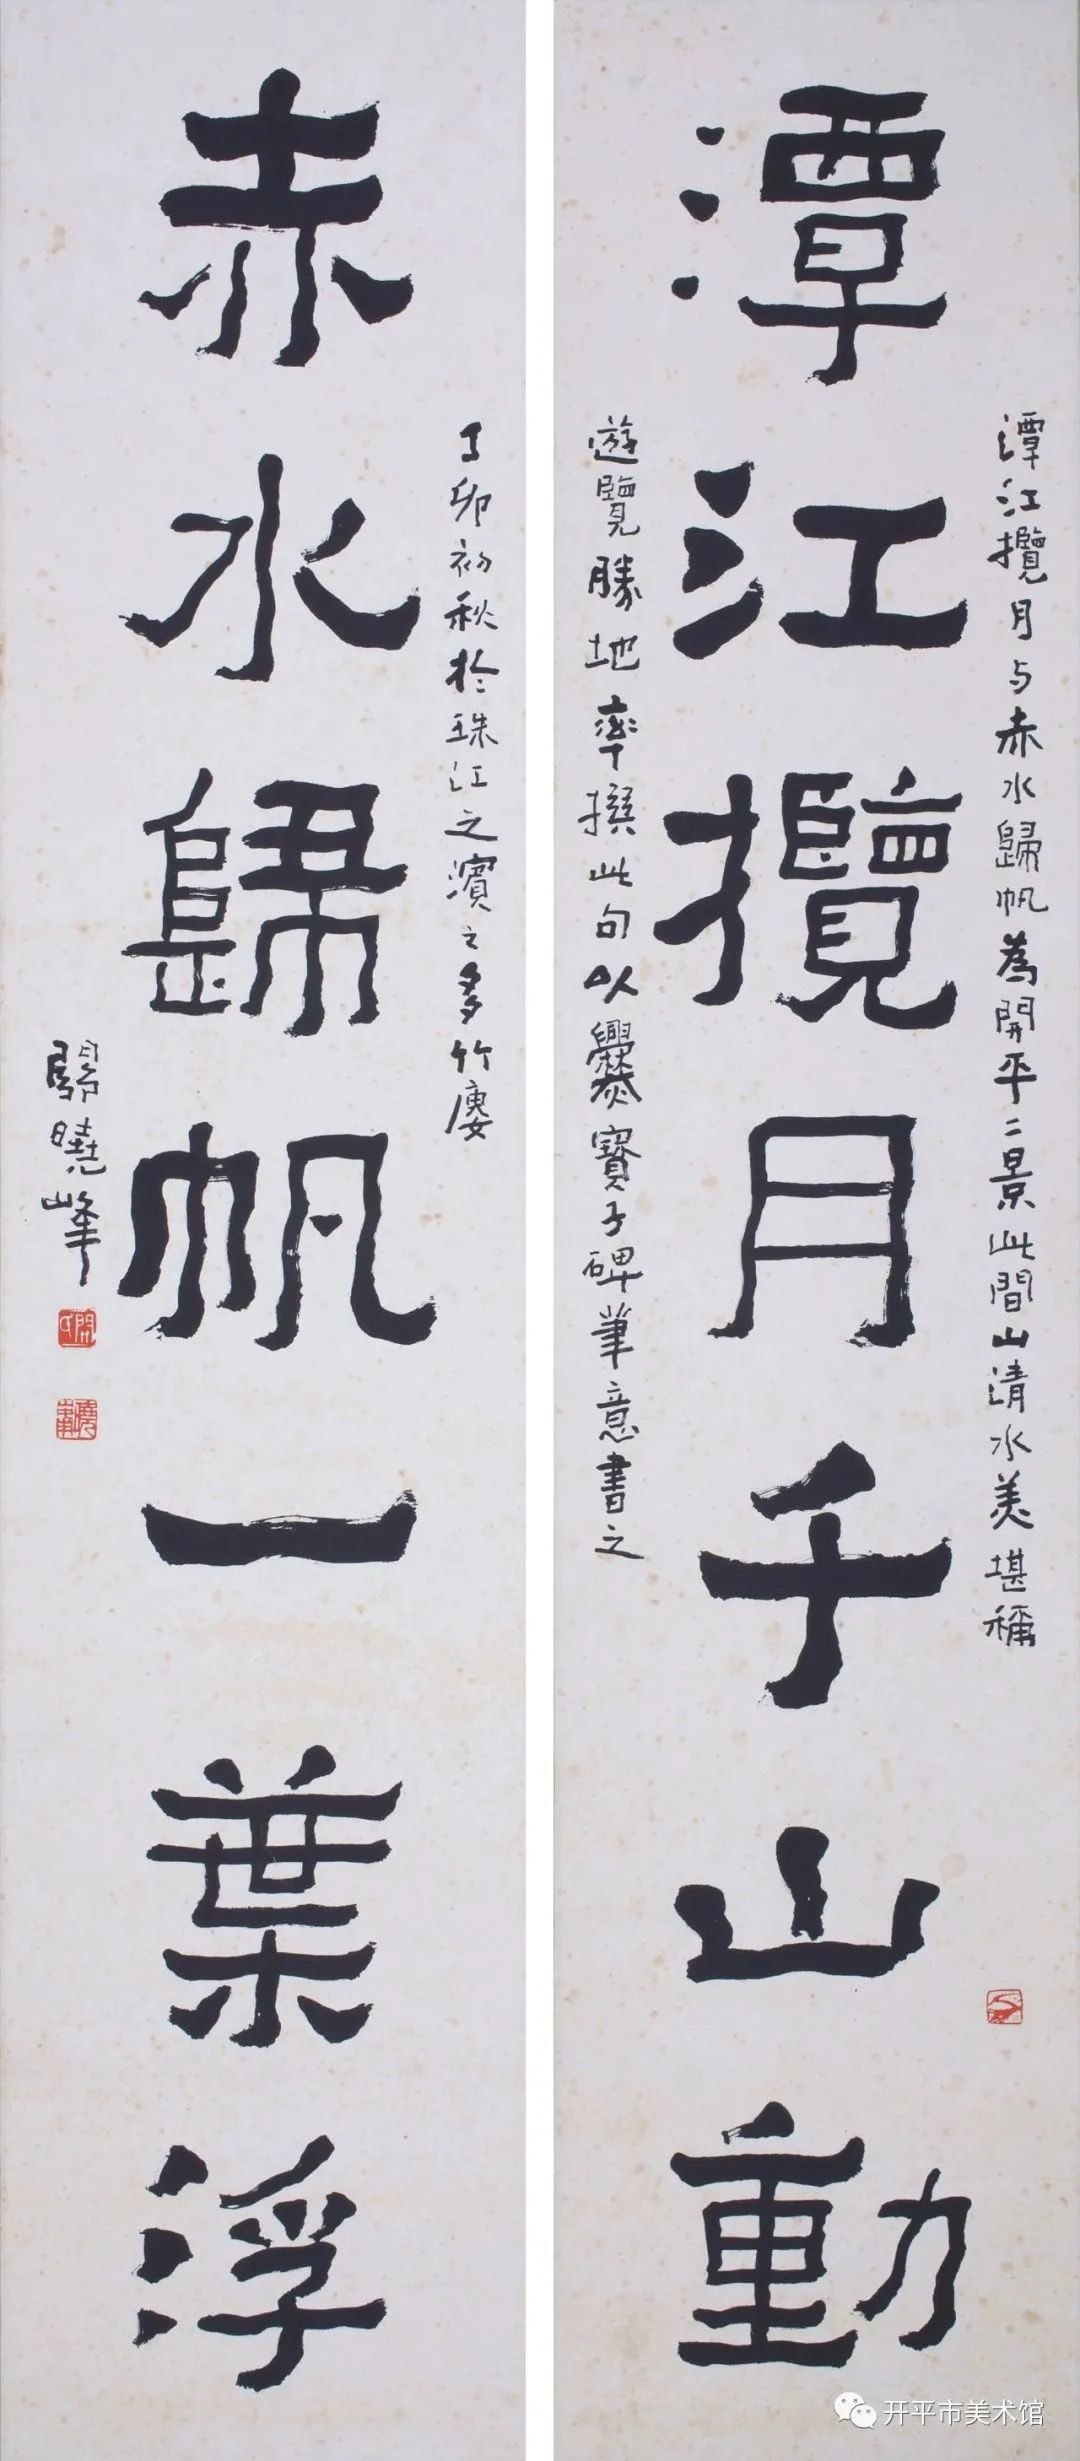 潭江攬月千山動
潭江攬月与赤水歸帆為開平二景此間山清水美堪稱
遊覽勝地率撰此句以爨寶子碑筆意書之
赤水歸帆一葉浮
丁卯初秋於珠江之濱之多竹廔
關曉峰
开平市美术馆